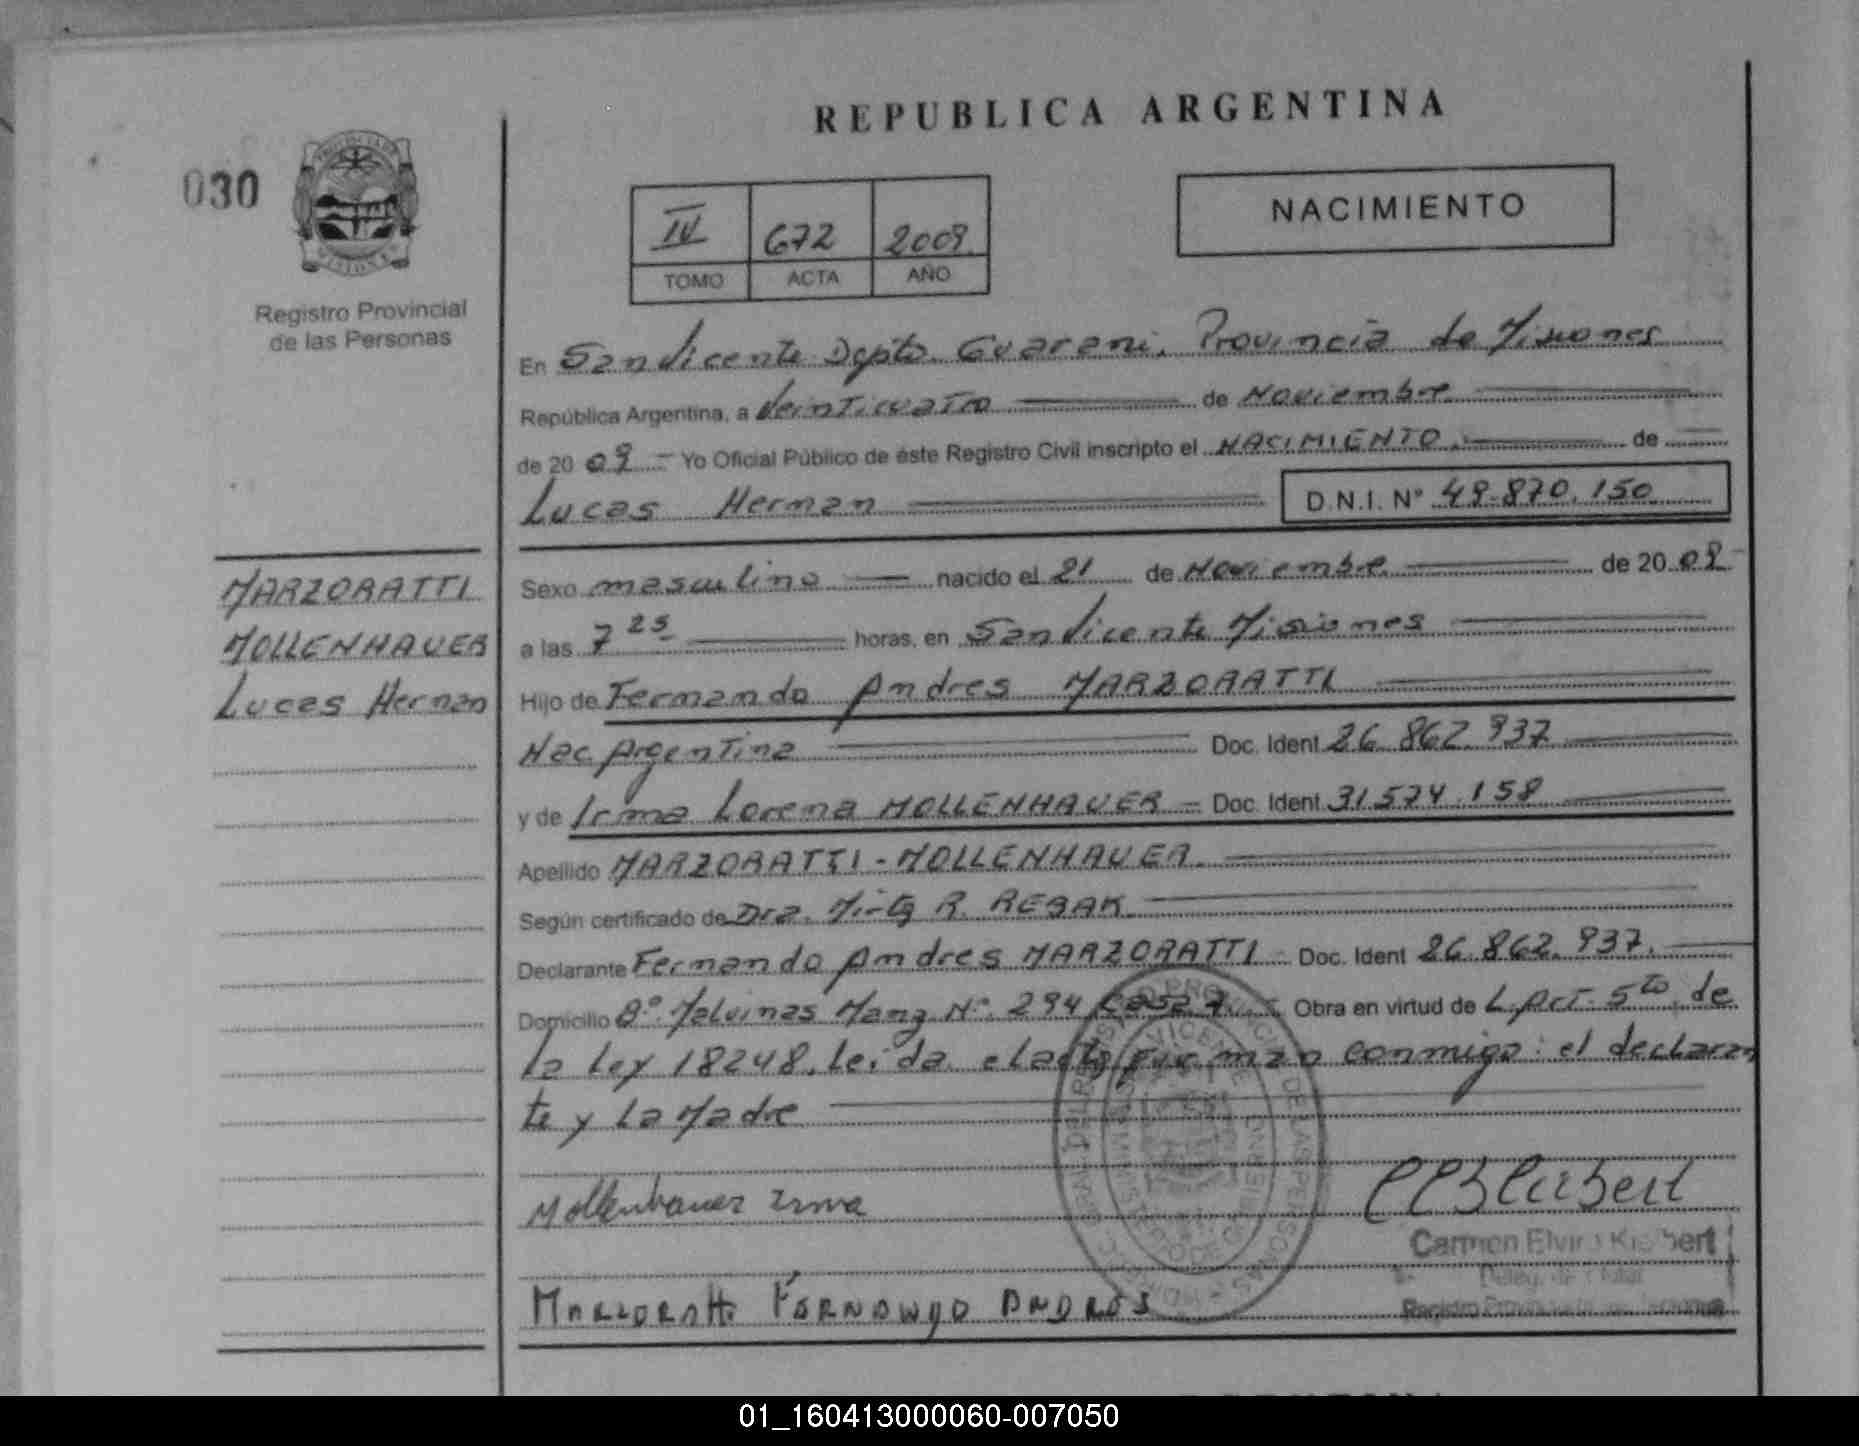 REPUBLICA ARGENTINA
030
PROVINCIA DE MISIONES
Registro Provincial
de las Personas
IV 672 2009
TOMO ACTA AÑO
NACIMIENTO
En San Vicente Dpto. Guarani, Provincia de Misiones
República Argentina, a Veinticuatro de Noviembre
de 20 09 Yo Oficial Público de éste Registro Civil inscripto el NACIMIENTO de
Lucas Hernan D.N.I. Nº 49.870.150
MARZORATTI
MOLLENHAUER
Lucas Hernan
Sexo masculino nacido el 21 de Noviembre de 20 09
a las 7 25 horas, en San Vicente Misiones
Hijo de Fernando Andres MARZORATTI
Nac. Argentina Doc. Ident 26.862.937
y de Irma Lorena MOLLENHAUER Doc. Ident 31.574.158
Apellido MARZORATTI - MOLLENHAUER
Según certificado de Dra. Mirta R. REBAK
Declarante Fernando Andres MARZORATTI Doc. Ident 26.862.937.
Domicilio Bº Malvinas Manz Nº 294 Casa 7 Obra en virtud de L. Art. 5to de
la Ley 18248. Leida el acta firman conmigo: el declaran
te y La Madre
Mollenhauer Irma
Carmen Elvira Kielbert
Registro Provincial de las Personas
Marzoratti Fernando Andres
REGISTRO PROVINCIAL DE LAS PERSONAS
SAN VICENTE
MINISTERIO DE GOBIERNO
01_160413000060-007050